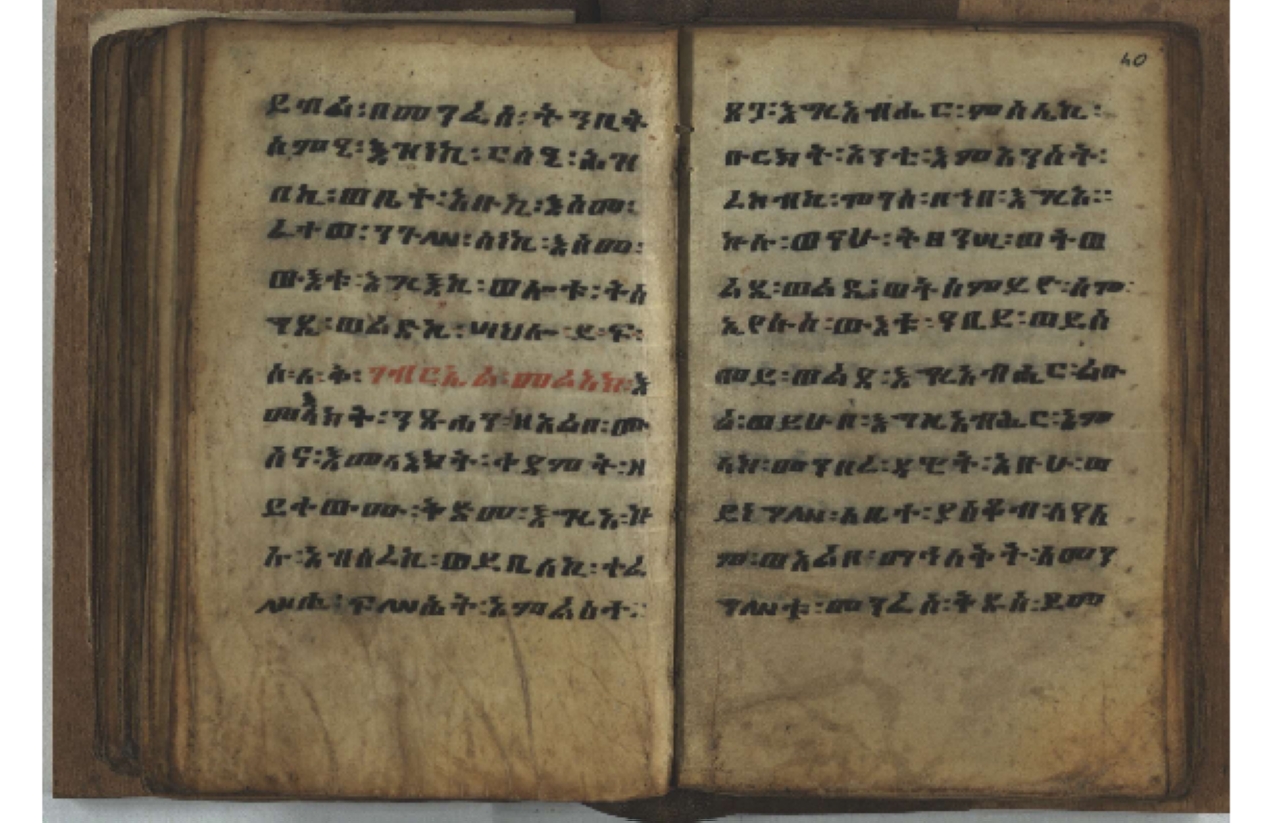 ይብል፡በመንፈሰ፡ትንቢት
ስምዒ፡እዝነኪ፡ርስዒ፡ሕዝ
በኪ፡ወቤተ፡አቡኪ፡እስመ፡
ፈተወ፡ንጉሥ፡ስነኪ፡እስመ፡
ውእቱ፡እግዚእኪ፡ወሎቱ፡ትሰ
ግዲ፡ወልድኪ፡ሣህሉ፡ይ፡ፍ፡
ለ፡ለ፡ቅ፡ገብርኤል፡መልአክ፡እ
መላእክት፡ንጹሐን፡ዘአልቦ፡ሙ
ስና፡እመላእክት፡ዘ
ይቀውሙ፡ቅድመ፡እግዚአ፡ኵ
ሉ፡አብሰረኪ፡ወይቤለኪ፡ተፈ
ሥሒ፡ፍሥሕት፡እምልዕት፡
ጸጋ፡እግዚአብሔር፡ምስሌኪ፡
ቡርክት፡አንቲ፡እምአንስት፡
ረከብኪ፡ሞገሰ፡በኀበ፡እግዚአ፡፡
ኵሉ፡ወናሁ፡ትፀንሲ፡ወትወ
ልዲ፡ወልደ፡ወትሰምዪዮ፡ስሞ፡
ኢየሱስ፡ውእቱ፡ዓቢይ፡ወይሰ
መይ፡ወልደ፡እግዚአብሔር፡ልዑ
ል፡ወይሁቦ፡እግዚአብሔር፡አም
ላክ፡መንበረ፡ዳዊት፡አቡሁ፡ወ
ይነግሥ፡ለቤተ፡ያዕቆብ፡ለዓለ
ም፡ወአልቦ፡ማኅለቅት፡ለመን
ግሥቱ፡መንፈስ፡ቅዱስ፡ይመ